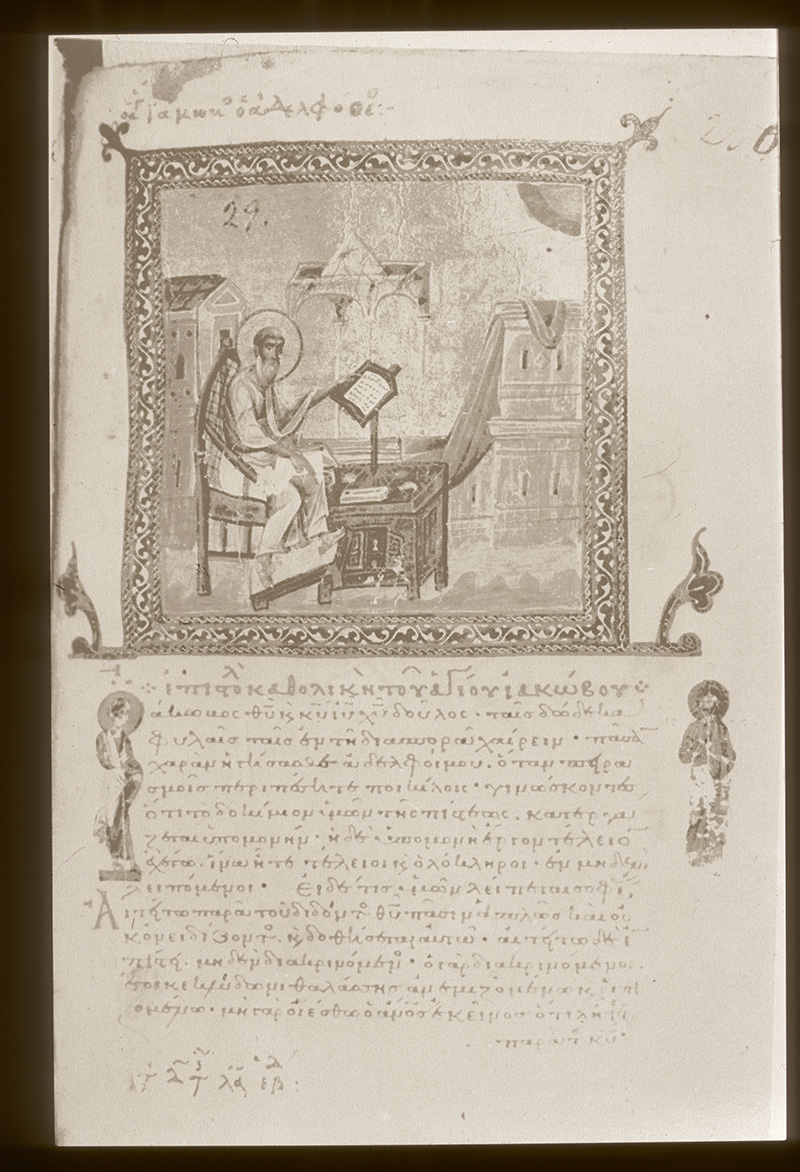 ὁ ἅγ Ἰάκωβ ὁ ἀδελφόθε:-
29.
ἐπιστολ καθολικὴ τοῦ ἁγίου ἰακώβου
άκωβος θῦ κ κῦ ἰῦ χῦ δοῦλος· ταῖς δώδεκα
φυλαῖς ταῖς ἐν τῆ διασπορᾶ χαίρειν· πᾶσαν
χαρὰν ἡγήσασθε ἀδελφοί μου. ὅταν πειρα
σμοῖς περιπέσητε ποικίλοις· γινώσκοντες
ὅτι τὸ δοκίμιον ὑμῶν τῆς πίστεως. κατεργά
ζεται ὑπομονήν· ἡ δὲ ὑπομονὴ ἔργον τέλειον
ἐχέτω. ἵνα ἦτε τέλειοι κ ὁλόκληροι· ἐν μηδενὶ
λειπόμενοι· Εἰ δέ τις ὑμῶν λείπεται σοφί
Αἰτείτω παρὰ τοῦ διδόντ θῦ πᾶσιν ἁπλῶς καὶ οὐ
κ ὀνειδίζοντ. κ δοθήσεται αὐτῶ· αἰτείτω δὲ ἐ
πίστει. μηδὲν διακρινόμεν· ὁ γὰρ διακρινόμενο.
ἔοικε κλύδωνι θαλάσσης ἀνεμιζομένω κ ῥιπι
ζομένω· μὴ γὰρ οἰέσθω ὁ ἄνος ἐκεῖνος ὅτι λήψ
παρὰ τοῦ κῦ·